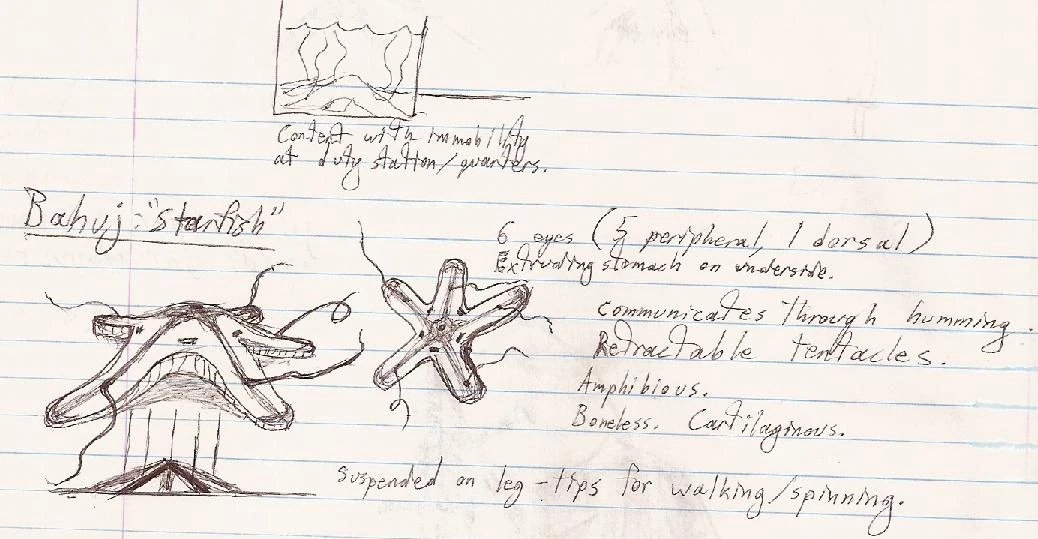 Content with immobility
at duty station/quarters.
Bahuj: "Starfish"
6 eyes (5 peripheral, 1 dorsal)
Extruding stomach on underside.
Communicates through humming.
Retractable tentacles.
Amphibious.
Boneless. Cartilaginous.
Suspended on leg-tips for walking/spinning.